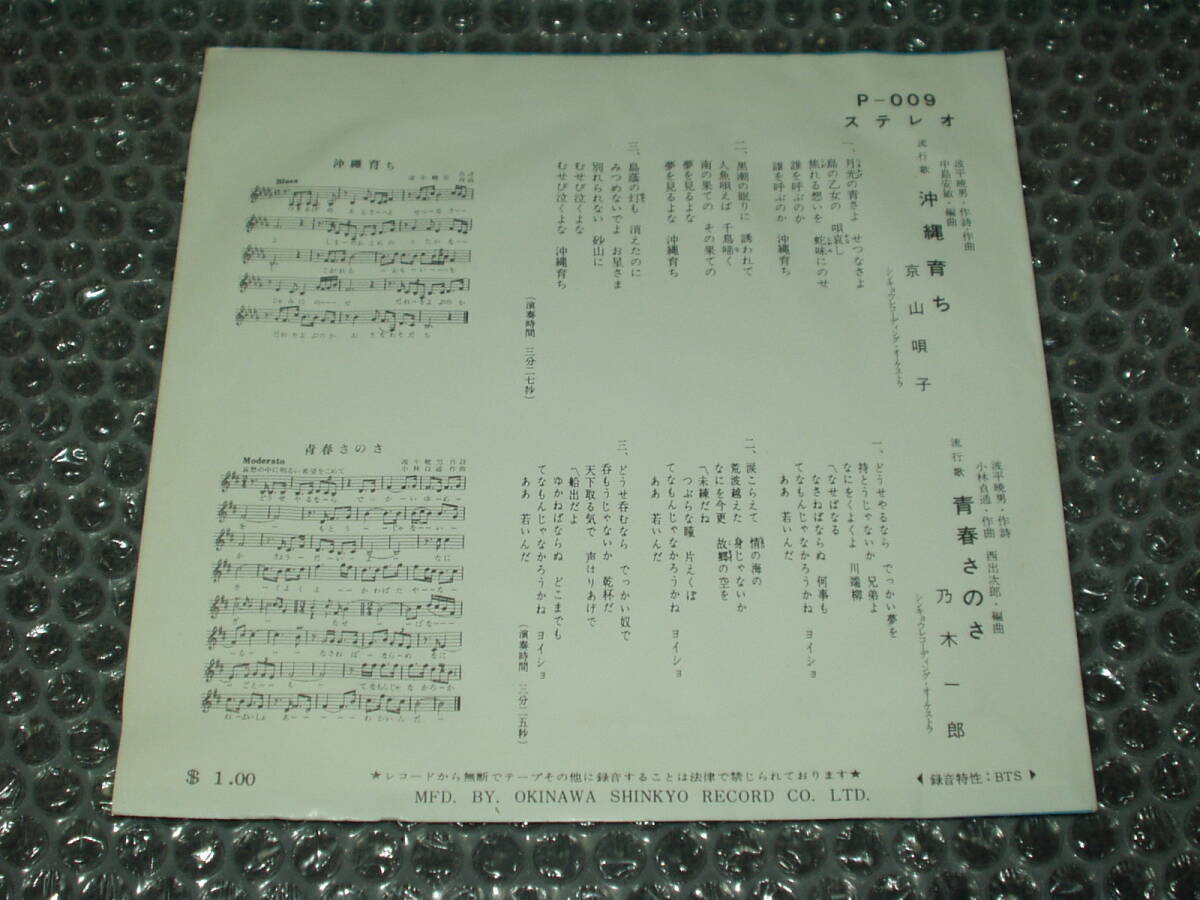 P-009
ステレオ
流行歌
沖縄育ち
波平暁男・作詩・作曲
中島安敏・編曲
京山唄子
シンキョウレコーディング・オーケストラ
一、月光の青さよ せつなさよ
島の乙女の 唄哀し
焦れる想いを 蛇味にのせ
誰を呼ぶのか
誰を呼ぶのか 沖縄育ち
二、黒潮の眠りに 誘われて
人魚唄えば 千鳥啼く
南の果ての その果ての
夢を見るよな
夢を見るよな 沖縄育ち
三、島蔭の灯も 消えたのに
みつめないでよ お星さま
別れられない 砂山に
むせび泣くよな
むせび泣くよな 沖縄育ち
(演奏時間 三分二七秒)
沖縄育ち
Blues
流行歌
青春さのさ
波平暁男・作詩
小林貞通・作曲 西出次郎・編曲
乃木一郎
シンキョウレコーディング・オーケストラ
一、どうせやるなら でっかい夢を
持とうじゃないか 兄弟よ
なにをくよくよ 川端柳
〽なせばなる
なさねばならぬ 何事も
てなもんじゃなかろうかね ヨイショ
ああ 若いんだ
二、涙こらえて 情の海の
荒波越えた 身じゃないか
なにを今更 故郷の空を
〽未練だね
つぶらな瞳 片えくぼ
てなもんじゃなかろうかね ヨイショ
ああ 若いんだ
三、どうせ呑むなら でっかい奴で
呑もうじゃないか 乾杯だ
天下取る気で 声はりあげて
〽船出だよ
ゆかねばならぬ どこまでも
てなもんじゃなかろうかね ヨイショ
ああ 若いんだ
(演奏時間 三分二五秒)
青春さのさ
Moderato
哀愁の中に明るい希望をこめて
$ 1.00
★レコードから無断でテープその他に録音することは法律で禁じられております★
◀録音特性:BTS▶
MFD. BY. OKINAWA SHINKYO RECORD CO. LTD.